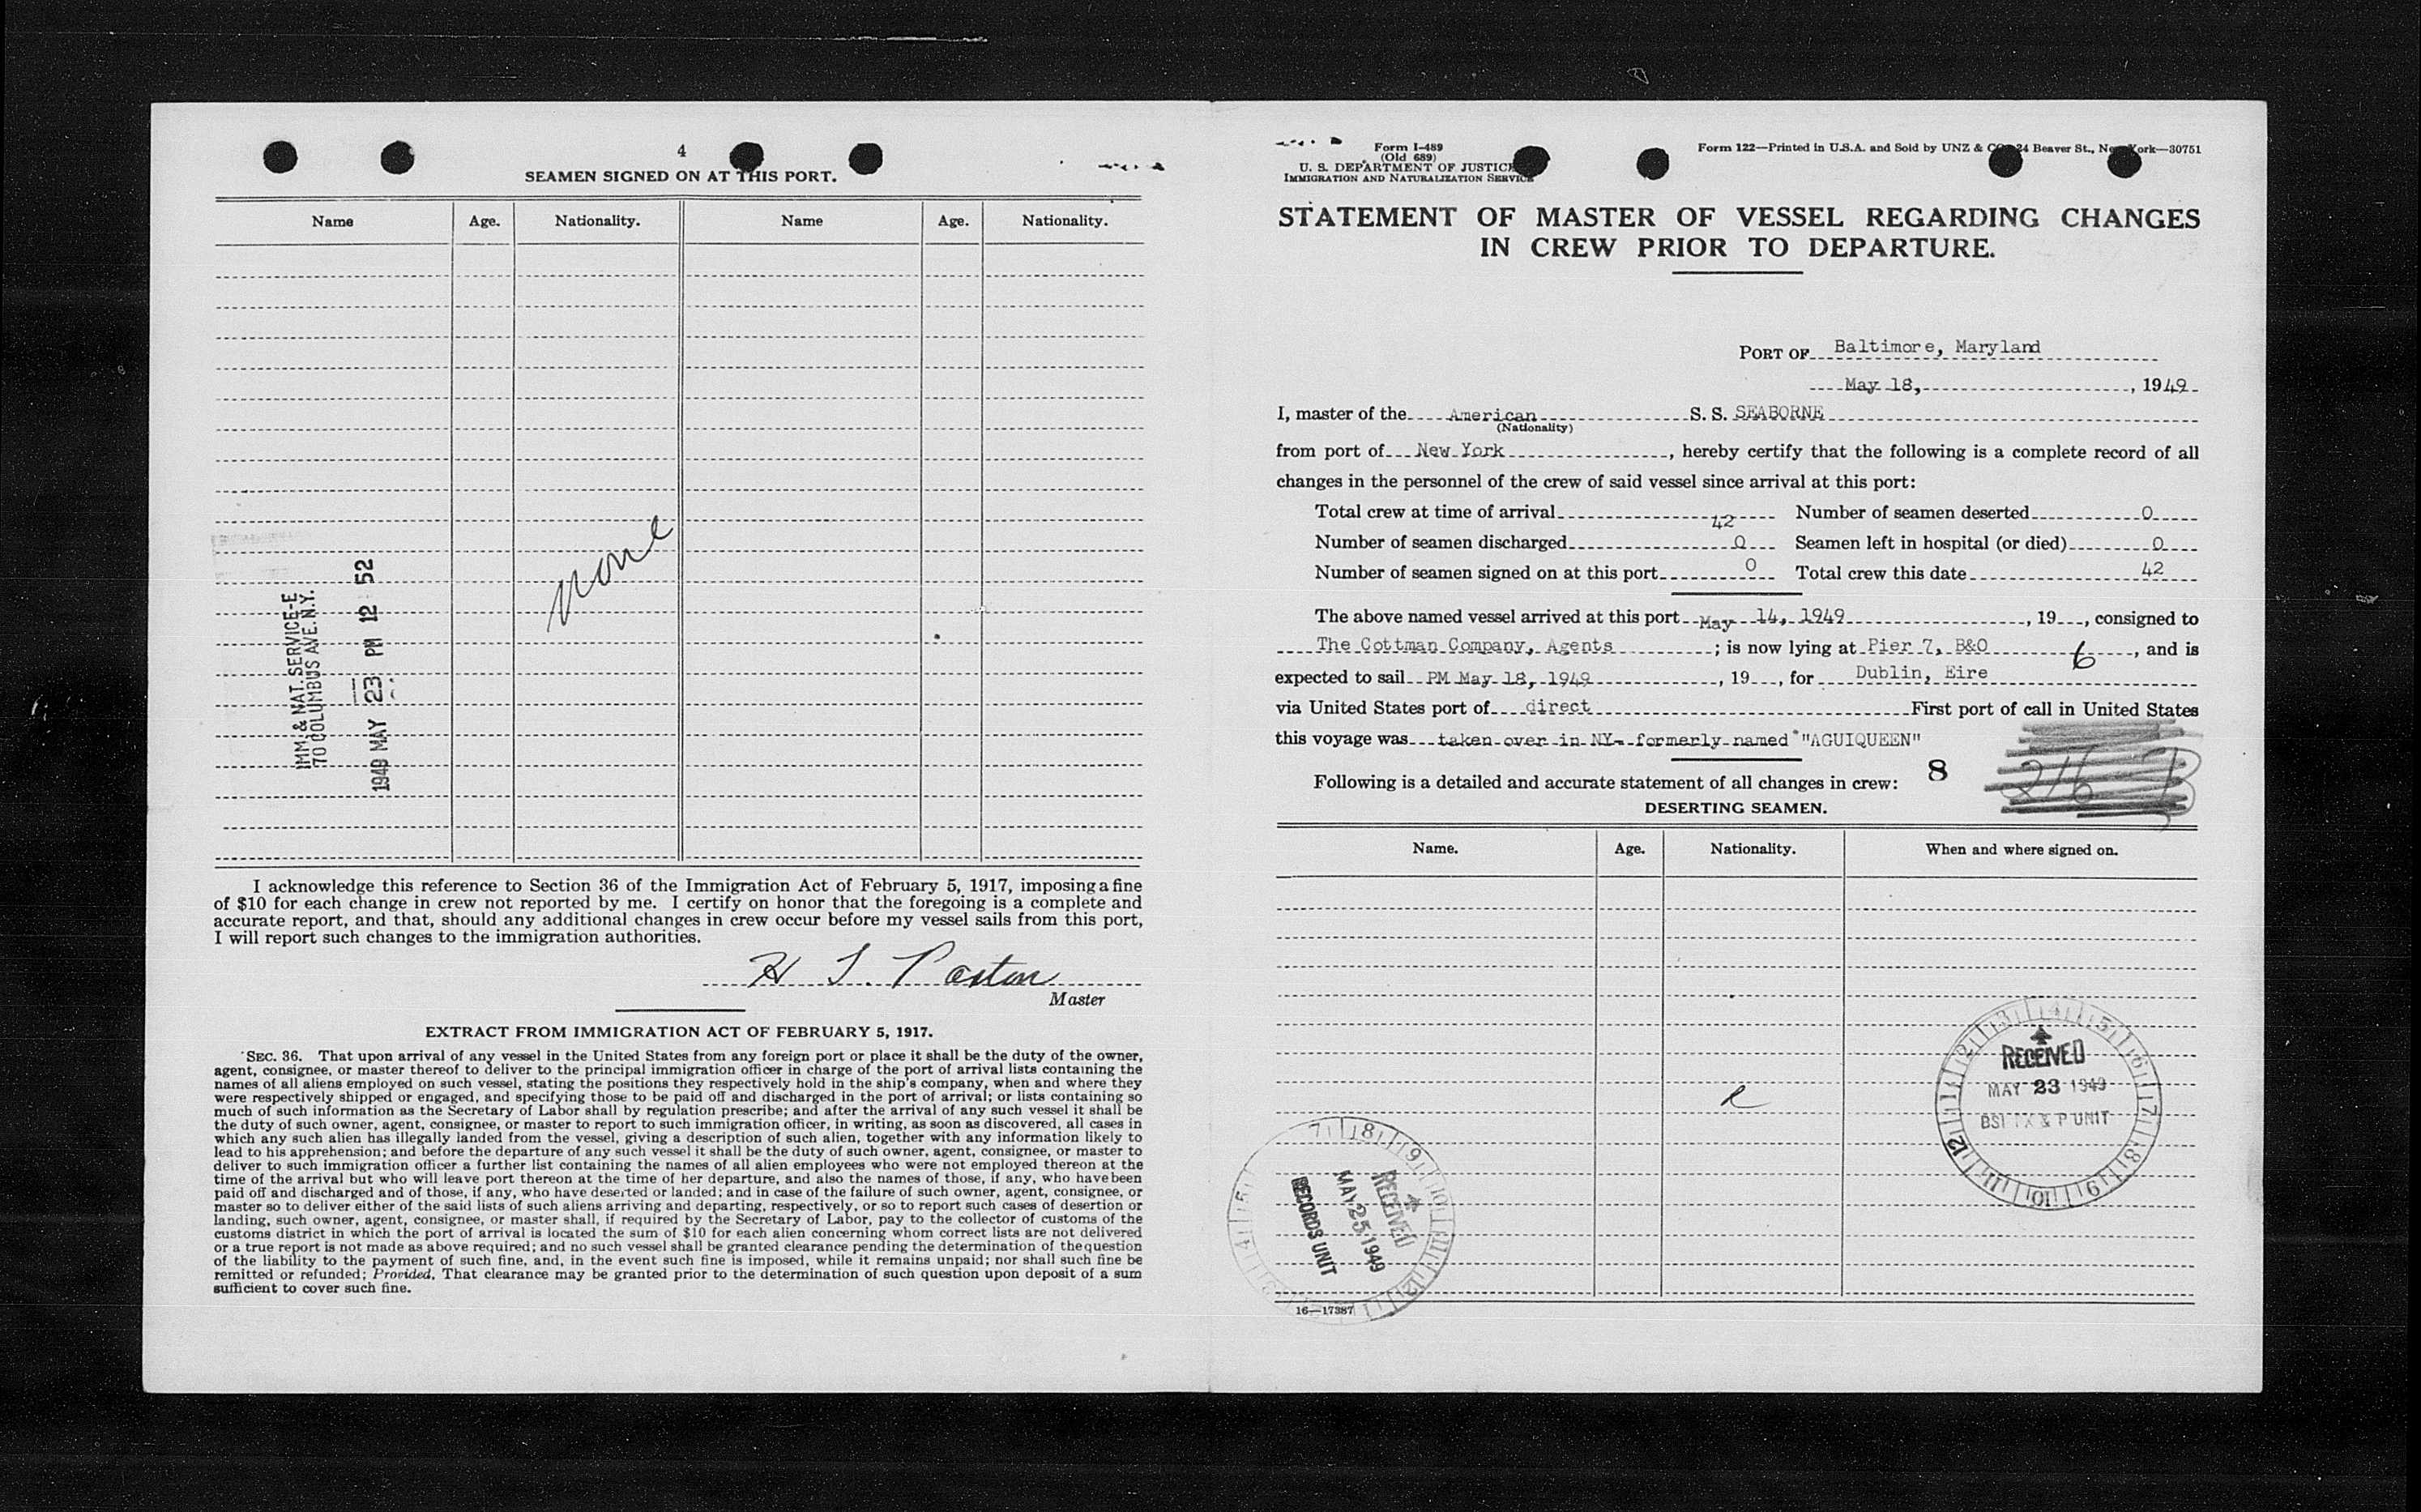 4
SEAMEN SIGNED ON AT THIS PORT.
Name Age. Nationality. Name Age. Nationality.
none
IMM. & NAT. SERVICE-E
70 COLUMBUS AVE. N.Y.
1949 MAY 23 PM 12 52
I acknowledge this reference to Section 36 of the Immigration Act of February 5, 1917, imposing a fine
of $10 for each change in crew not reported by me. I certify on honor that the foregoing is a complete and
accurate report, and that, should any additional changes in crew occur before my vessel sails from this port,
I will report such changes to the immigration authorities.
H
Master
EXTRACT FROM IMMIGRATION ACT OF FEBRUARY 5, 1917.
SEC. 36. That upon arrival of any vessel in the United States from any foreign port or place it shall be the duty of the owner,
agent, consignee, or master thereof to deliver to the principal immigration officer in charge of the port of arrival lists containing the
names of all aliens employed on such vessel, stating the positions they respectively hold in the ship's company, when and where they
were respectively shipped or engaged, and specifying those to be paid off and discharged in the port of arrival; or lists containing so
much of such information as the Secretary of Labor shall by regulation prescribe; and after the arrival of any such vessel it shall be
the duty of such owner, agent, consignee, or master to report to such immigration officer, in writing, as soon as discovered, all cases in
which any such alien has illegally landed from the vessel, giving a description of such alien, together with any information likely to
lead to his apprehension; and before the departure of any such vessel it shall be the duty of such owner, agent, consignee, or master to
deliver to such immigration officer a further list containing the names of all alien employees who were not employed thereon at the
time of the arrival but who will leave port thereon at the time of her departure, and also the names of those, if any, who have been
paid off and discharged and of those, if any, who have deserted or landed; and in case of the failure of such owner, agent, consignee, or
master so to deliver either of the said lists of such aliens arriving and departing, respectively, or so to report such cases of desertion or
landing, such owner, agent, consignee, or master shall, if required by the Secretary of Labor, pay to the collector of customs of the
customs district in which the port of arrival is located the sum of $10 for each alien concerning whom correct lists are not delivered
or a true report is not made as above required; and no such vessel shall be granted clearance pending the determination of the question
of the liability to the payment of such fine, and, in the event such fine is imposed, while it remains unpaid; nor shall such fine be
remitted or refunded; Provided, That clearance may be granted prior to the determination of such question upon deposit of a sum
sufficient to cover such fine.
Form I-489
(Old 689)
U. S. DEPARTMENT OF JUSTICE
IMMIGRATION AND NATURALIZATION SERVICE
Form 122—Printed in U.S.A. and Sold by UNZ & CO 24 Beaver St., New York—30751
STATEMENT OF MASTER OF VESSEL REGARDING CHANGES
IN CREW PRIOR TO DEPARTURE.
PORT OF Baltimore, Maryland
May 18, , 1949
I, master of the American S. S. SEABORNE
(Nationality)
from port of New York , hereby certify that the following is a complete record of all
changes in the personnel of the crew of said vessel since arrival at this port:
Total crew at time of arrival 42 Number of seamen deserted 0
Number of seamen discharged 0 Seamen left in hospital (or died) 0
Number of seamen signed on at this port 0 Total crew this date 42
The above named vessel arrived at this port May 14, 1949 , 19 , consigned to
The Cottman Company, Agents ; is now lying at Pier 7, B&O 6 , and is
expected to sail PM May 18, 1949 , 19 , for Dublin, Eire
via United States port of direct First port of call in United States
this voyage was taken over in NY- formerly named "AGUIQUEEN"
Following is a detailed and accurate statement of all changes in crew: 8
DESERTING SEAMEN.
Name. Age. Nationality. When and where signed on.
RECEIVED
MAY 23 1949
BSI TX & P UNIT
RECEIVED
MAY 25 1949
RECORDS UNIT
16—17387